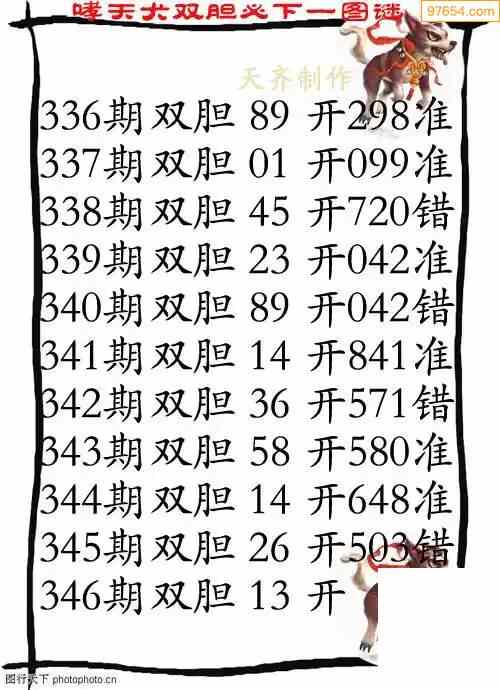 哮天犬双胆必下一图谜
97654.com
天齐制作
336期 双胆 89 开298准
337期 双胆 01 开099准
338期 双胆 45 开720错
339期 双胆 23 开042准
340期 双胆 89 开042错
341期 双胆 14 开841准
342期 双胆 36 开571错
343期 双胆 58 开580准
344期 双胆 14 开648准
345期 双胆 26 开503错
346期 双胆 13 开
图行天下 photophoto.cn